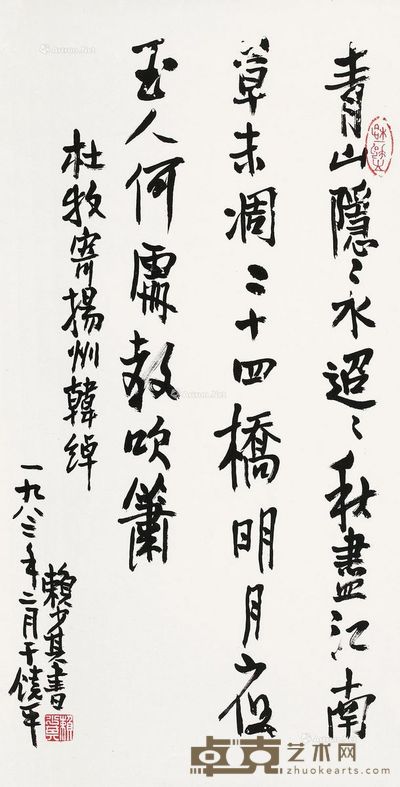 青山隱〻水迢〻秋盡江南
草未凋二十四橋明月夜
玉人何處教吹簫
杜牧寄揚州韓綽
賴少其書
一九八三年二月于饒平
卓克艺术网
zhuokearts.com